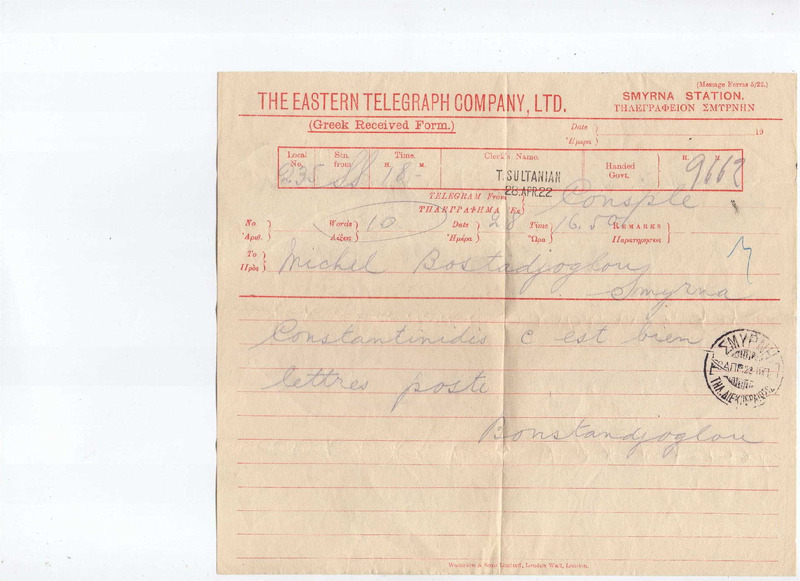 (Message Forms 5/22.)
THE EASTERN TELEGRAPH COMPANY, LTD.
SMYRNA STATION.
ΤΗΛΕΓΡΑΦΕΙΟΝ ΣΜΥΡΝΗΝ
(Greek Received Form.)
Date
Ἡμέρα
19
Local No. Stn. from Time. H. M. Clerk's Name. Handed Govt. H. M.
235 18- T. SULTANIAN 9662
28.APR.22
TELEGRAM From Consple
ΤΗΛΕΓΡΑΦΗΜΑ Ἐξ
No Words 10 Date 28 Time 16.50 REMARKS
Ἀριθ. Λέξεις Ἡμέρα Ὥρα Παρατηρήσεις
To Michel Bostadjoglou
Πρὸς
Smyrna
Constantinidis c est bien
lettres poste
Bonstandjoglou
ΣΜΥΡΝΗ
ΑΠΡ.22
Waterlow & Sons Limited, London Wall, London.